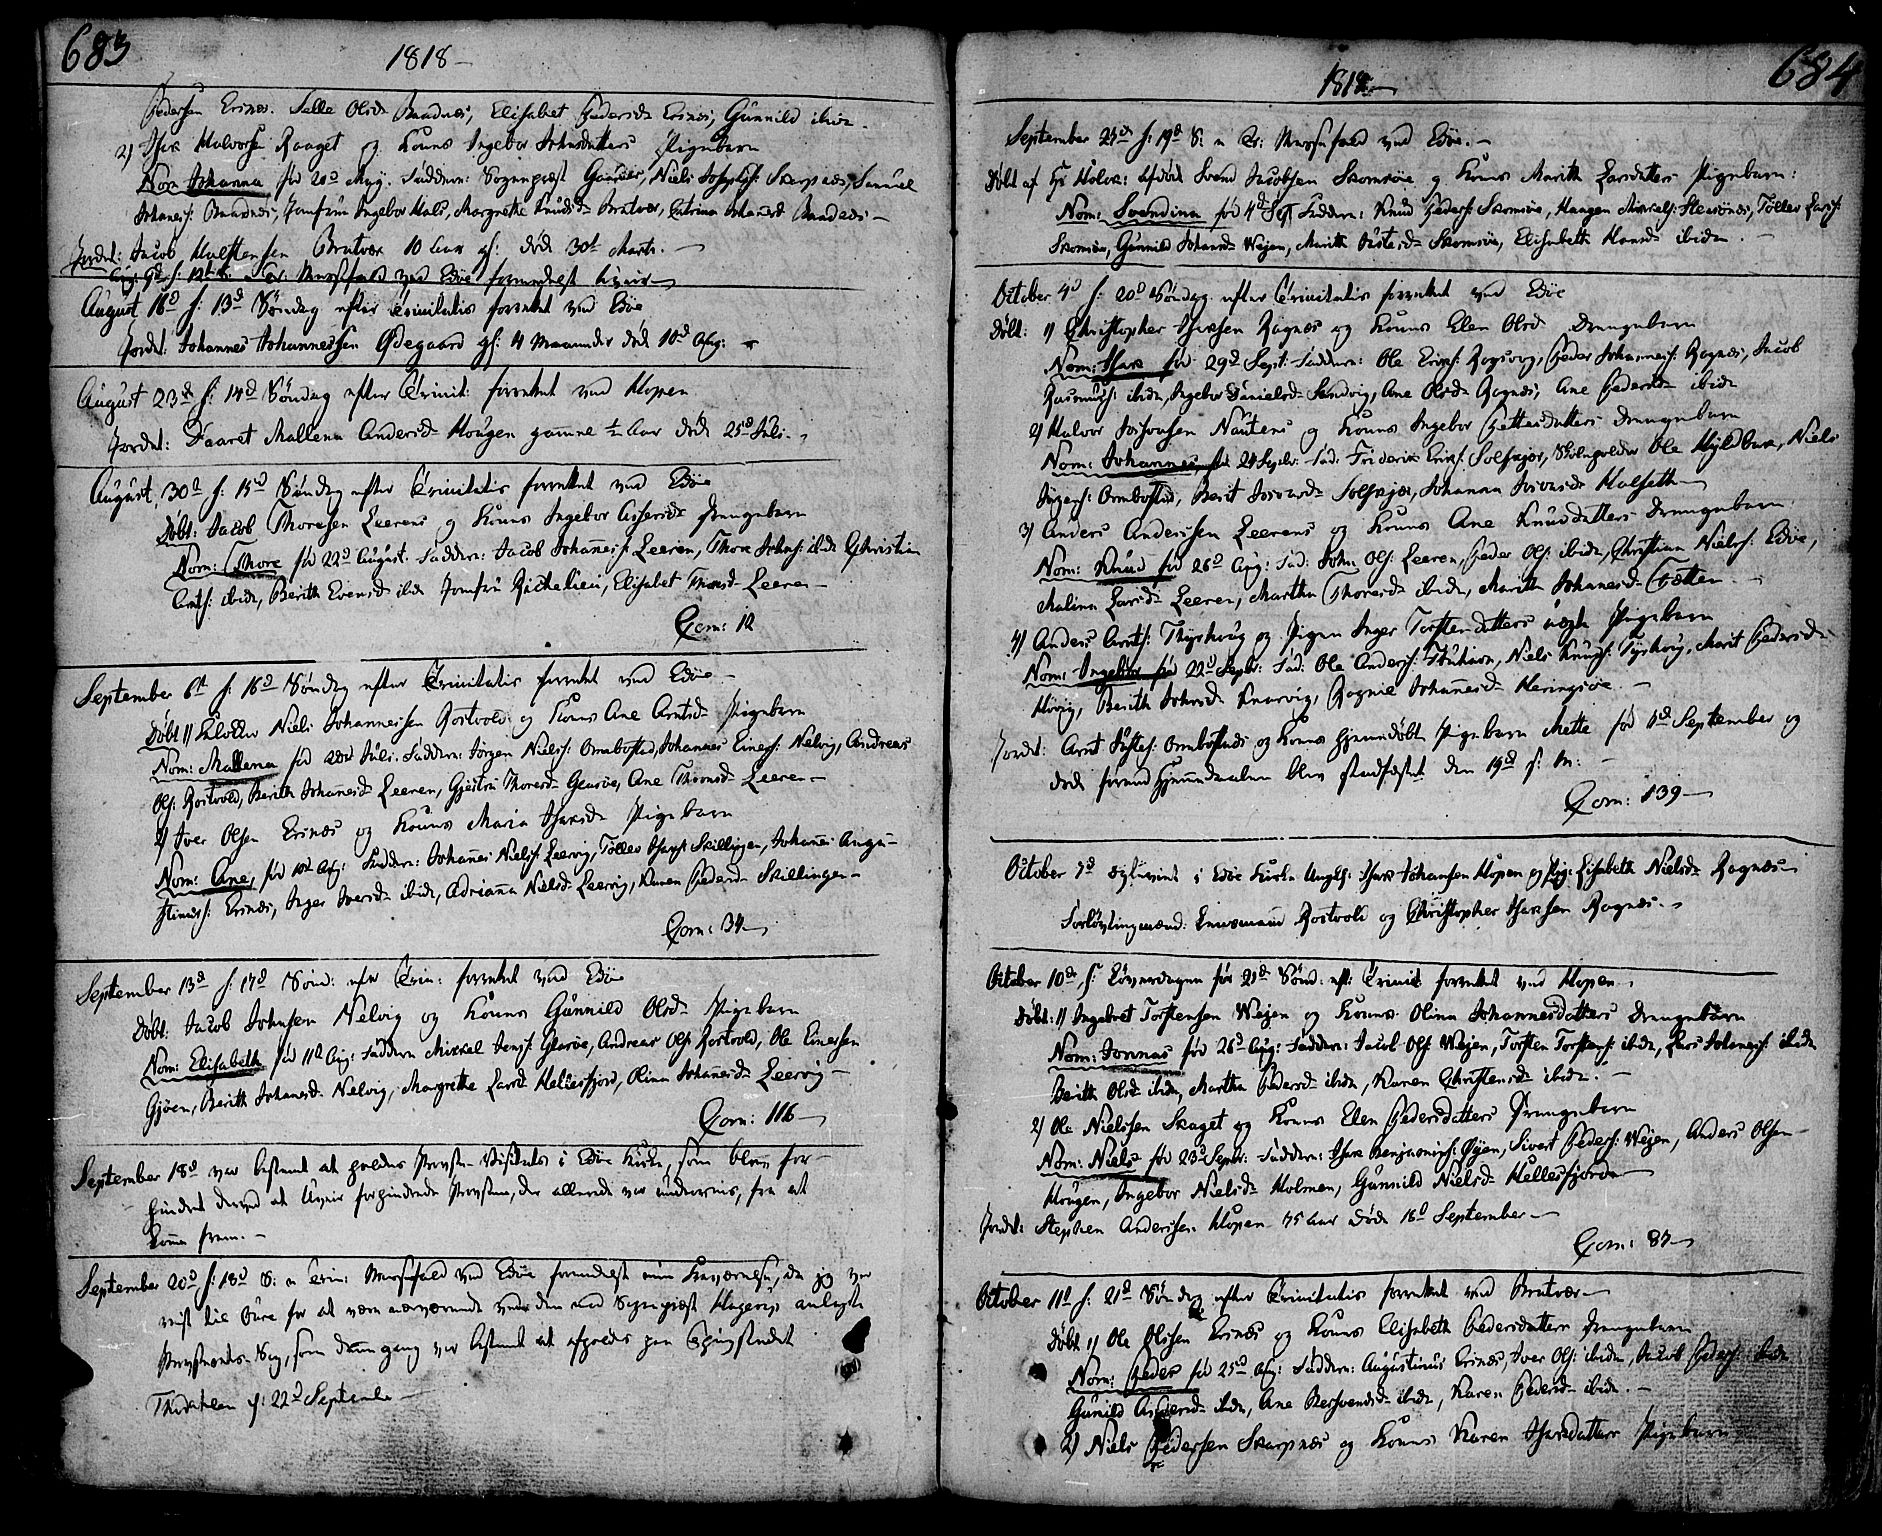 683
1818
Pedersen Erinæs. Selle Olsd. Bradnæs, Elisabet Pedersd. Erinæs, Gunnild ibid.
2) Isac Halvorsen Raaget og Kones Ingebor Johnsdatters Pigebarn
Nom: Johanna fød 20d May. Faddere: Sogneprest Niels Josephs: Skarpnæs, Samuel
Johanes: Bradnæs, Jomfru Ingebor Hals, Margrethe Knudsd. Bratvær, Catrina Johanesd. Bradnæs
Jordet: Jacob Halstensen Bratvær 10 Aar gl: død 30t Marts.
Aug: 9d f: 12te S: Tr: Messefald ved Edøe formedelst Uveir
August 16d f: 13d Søndag efter Trinitatis forrettet ved Edøe
Jordet: Johannes Johannessen Ødegaard gl: 4 Maaneder død 10d Aug:
August 23de f: 14d Søndag efter Trinit: forrettet ved Hopen
Jordet: Maaret Mallena Andersd. Hougen gamme ½ Aar død 25d Juli.
August 30d f: 15d Søndag efter Trinitatis forrettet ved Edøe
Døbt: Jacob Thoresen Leerens og Kones Ingebor Drengebarn
Nom: Thore fød 22d August. Faddere: Jacob Johanes: Leeren, Thore Johns: ibid. Christian
Arnts: ibid, Berith Evensd. ibid Jomfru Richelieu, Elisabet Thoresd. Leeren
Com: 12
September 6t f: 16d Søndag efter Trinitatis forrettet ved Edøe
Døbt 1) Niels Johannessen Rostvold og Kones Ane Arntsd. Pigebarn
Nom: Mallena fød Juli. Faddere: Jørgen Niels: Ormbostad, Johannes Einers: Nelvig, Andreas
Ols: Rostvold, Berith Johanesd. Leeren, Gjertru Thoresd. Glasøe, Ane Thoresd. Leeren
2) Iver Olsen Erinæs og Kones Maria Isacsd. Pigebarn
Nom: Ane, fød 10d Aug: Faddere: Johanes Niels: Leervig, Tolles Isacs: Skillingen, Johanes Augu-
stinus: Erinæs, Inger Iversd. ibid, Adriana Nielsd. Leervig, Karen Pedersd. Skillingen
Com: 34
September 13d f: 17d Sønd: efter Trin: forrettet ved Edøe
Døbt: Jacob Johnsen Nelvig og Kones Gunnild Olsd. Pigebarn
Nom: Elisabeth fød 11d Aug: Faddere Mikkel Jens: Glasøe, Andreas Ols: Rostvold, Ole Einersen
Gjøen, Berith Johanesd. Nelvig, Margrethe Larsd. Hellesfjord, Olina Johanesd. Leervig
Com: 116
September 18d var bestemt at holdes Provste-Visitats i Edøe Kirke, som blev for-
hindret derved at Uveir forhindrede Provsten, der allerede var underveis, fra at
komme frem.
September 20d f: 18d S: e Trin: Messefald ved Edøe formedelst min Fraværelse, da jeg var
reist til Øure for at være nærværende ved den mod Sogneprest anlagte
Provsterets-Sag, som denne gang var bestemt at afholdes paa Thingstedet
f: 22d September
684
1818
September 27de f: 19d S: e Tr: Messefald ved Edøe.
Døbt af Hr Holck: afdøde Svend Jacobsen Skomsøe og Kones Marith Larsdatters Pigebarn:
Nom: Svendina fød 4d Sept Faddere: Knud Peders: Skomsøe, Haagen Mikkels: Stensønes, Tolles Lars:
Skomsøe, Gunnild Johansd. Wejen, Marith Østensd. Skomsøe, Elisabeth Hansd. ibidem.
October 4d f: 20d Søndag efter Trinitatis forrettet ved Edøe
Døbt: 1) Christopher Isacsen Ragnæs og Kones Elen Olsd. Drengebarn
Nom: Isac fød 29d Sept: Faddere: Ole Eriks: Rogsvog, Peder Johannes: Ragnæs, Jacob
Rasmus: ibidem, Ingebor Danielsd. Sandvig, Ane Olsd. Ragnæs, Ane Pedersd. ibidem
2) Halvor Nautens og Kones Ingebor Pettersdatters Drengebarn
Nom: Johannes, fød 24 Septbr: Fad: Friderik Eriks: Solskjær, Skoleholder Ole Myldbak, Niels
Ormbostad, Berit Iversd. Solskjær, Johanna Iversd. Halseth
3) Anders Anderssen Leerens og Kones Ane Knudsdatters Drengebarn
Nom: Knud fød 26d Aug: Fad: John Ols: Leeren, Peder Ols: ibidem, Christian Niels: Edøe,
Malina Larsd. Leeren, Martha Thoresd. ibidem, Marith Johanesd. Tætten
4) Anders Arnts: Thyrhoug og Pigen Inger Torstendatters uægte Pigebarn
Nom: Ingebor fød 22d Septbr: Fad: Ole Anders: Niels Knuds: Tyrhoug, Marit Pedersd.
Høvig, Berith Johnsd. Knarvig, Ragnil Johannesd. Heringsøe.
Jordet: Arnt Ormbostads og Kones hjemmedøbt Pigebarn Mette fød 6d September og
døde førend Hjemmedaaben blev stadfæstet den 19d s: M:
Com: 139
October 7d copuleret i Edøe Kirke Ungk: Isac Johansen Hopen og Pig: Elisabeth Nielsd. Ragnæs
Forlovningsmænd: Rostvold og Christopher Isacsen Ragnæs.
October 10de f: Løverdagen før 21d Sønd: eft: Trinit: forrettet ved Hopen
Døbt: 1) Ingebret Torstensen Wejen og Kones Olina Johannesdatters Drengebarn
Nom: Jonnas fød 26d Aug: Faddere: Jacob Ols: Wejen, Torsten Torstens: ibidem, Lars Johanes: ibidem
Berith Olsd. ibidem, Martha Pedersd. ibidem, Karen Christensd. ibidem.
2) Ole Nielssen Skaget og Kones Elen Pedersdatters Drengebarn
Nom: Niels fød 23d Septbr: Faddere: Isac Benjamins: Øyen, Sivert Peders: Wejen, Anders Olsen
Hougen, Ingebor Nielsd. Holmen, Gunnild Nielsd. Hellesfjorden
Jordet: Stephen Anderssen Hopen 75 Aar døde 16d September
Com: 87
October 11d f: 21d Søndag efter Trinitatis forrettet ved Bratvær
Døbt 1) Ole Olssen Erinæs og Kones Elisabeth Pedersdatters Drengebarn
Nom: Peder fød 25d Aug: Faddere: Augustinus Erinæs, Iver Ols: ibidem, Jacob Peders: ibidem
Gunild ibidem, Ane Bersvendsd. ibidem, Karen Pedersd. ibidem.
2) Niels Pedersen Skarpnæs og Kones Karen Isacsdatters Pigebarn